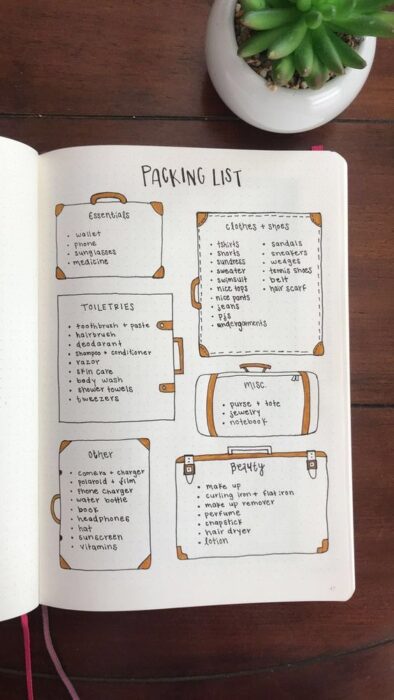 PACKING LIST
Essentials
• wallet
• phone
• sunglasses
• medicine
Clothes + Shoes
• tshirts
• shorts
• sundress
• sweater
• swimsuit
• nice tops
• nice pants
• jeans
• pjs
• undergarments
• sandals
• sneakers
• wedges
• tennis shoes
• belt
• hair scarf
TOILETRIES
• toothbrush + paste
• hairbrush
• deodarant
• shampoo + conditioner
• razor
• skin care
• body wash
• shower towels
• tweezers
MISC.
• purse + tote
• jewelry
• notebook
Other
• camera + charger
• polaroid + film
• phone charger
• water bottle
• book
• headphones
• hat
• sunscreen
• vitamins
Beauty
• make up
• curling iron + flat iron
• make up remover
• perfume
• chapstick
• hair dryer
• lotion